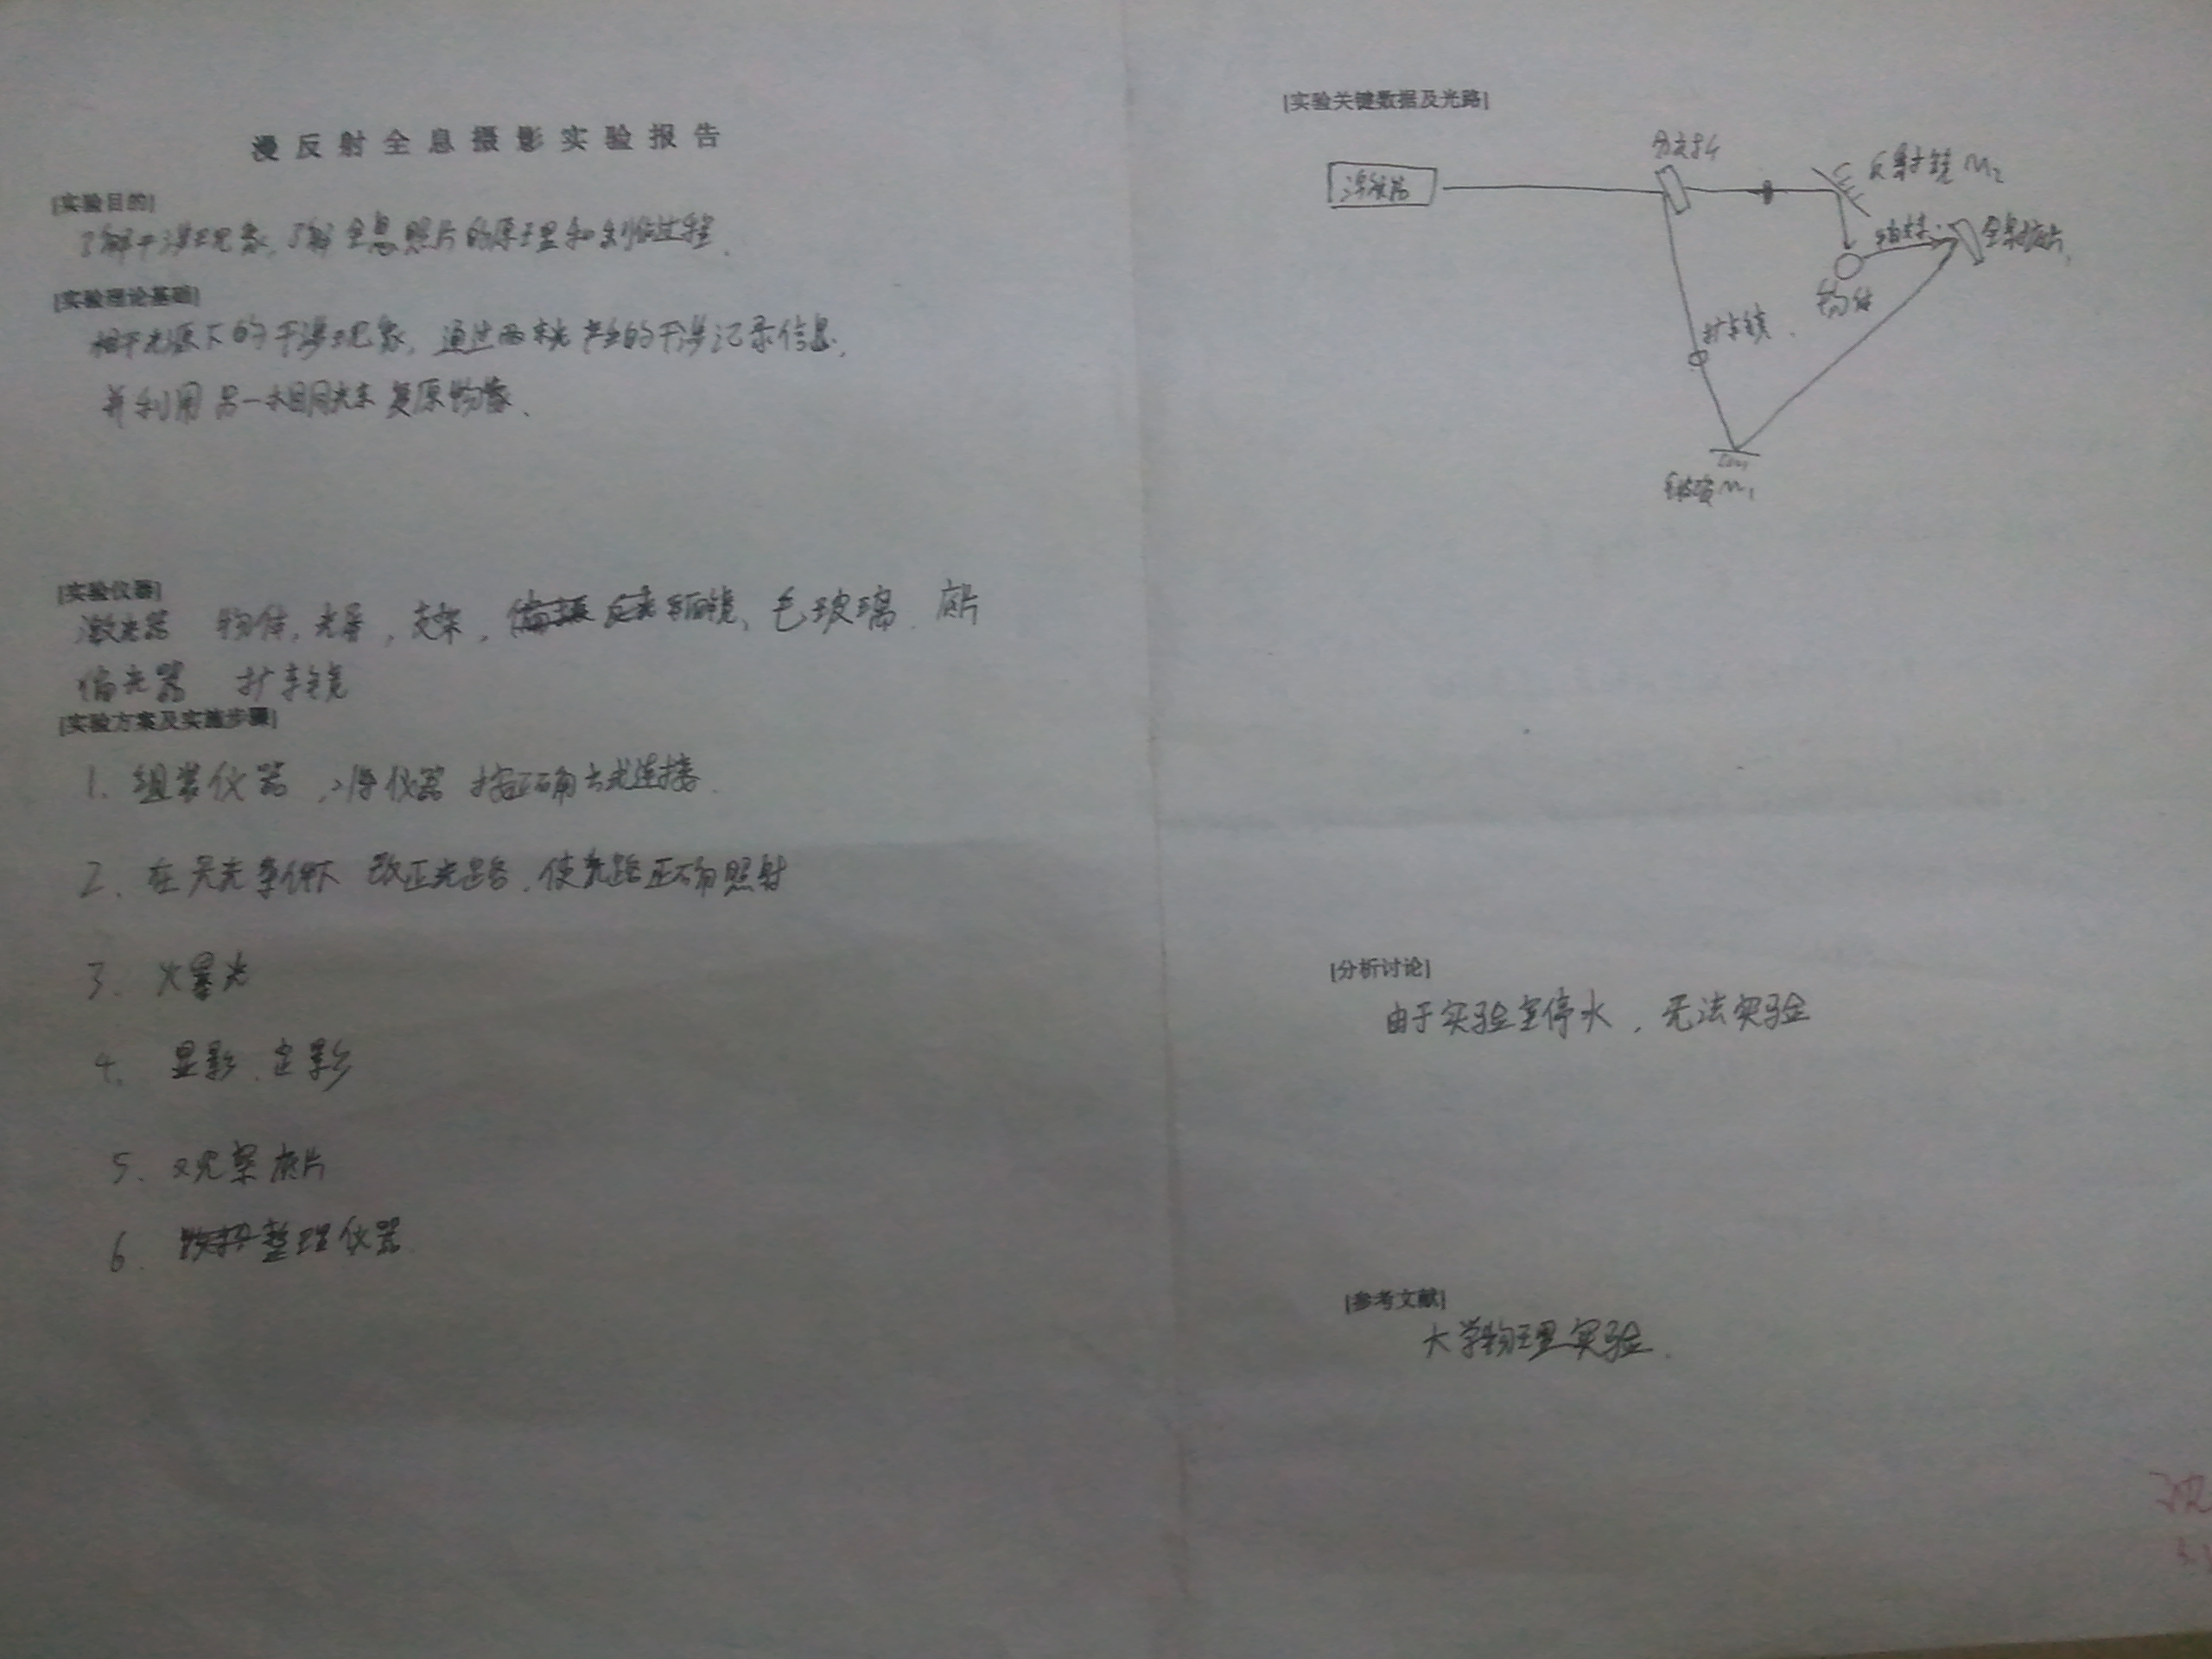 漫反射全息摄影实验报告
[实验目的]
了解干涉现象,了解全息照片的原理和制作过程.
[实验理论基础]
相干光源下的干涉现象,通过两束光产生的干涉记录信息,
并利用另一相同光束复原物像、
[实验仪器]
激光器 物体,光导,支架, 平面镜、毛玻璃. 底片
偏光器 扩束镜
[实验方案及实施步骤]
1. 组装仪器,将仪器按正确方式连接.
2. 在关光条件下 改正光路,使光路正确照射
3. 曝光
4. 显影、定影
5. 观察底片
6. 整理仪器.
[实验关键数据及光路]
激光器
反射镜 M2
物体
扩束镜.
M1
[分析讨论]
由于实验室停水,无法实验
[参考文献]
大学物理实验.